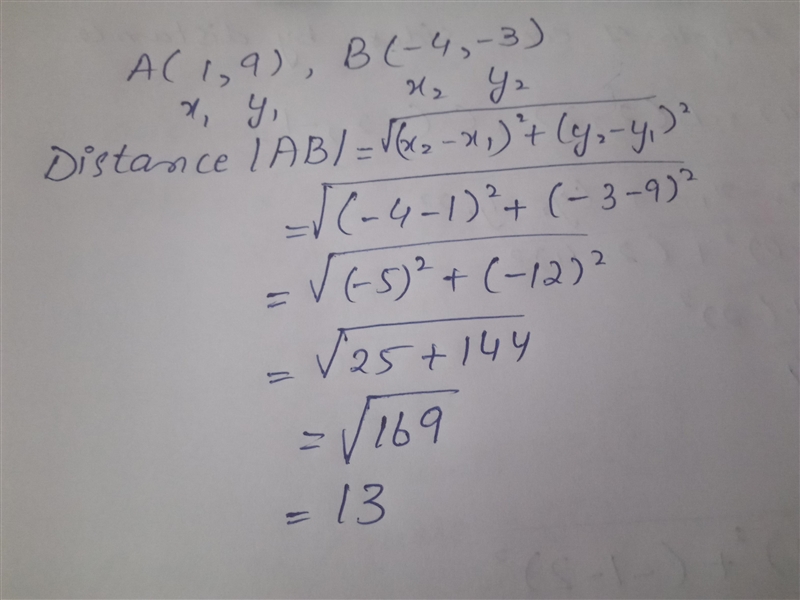 A(1,9), B(-4,-3)
x₁ y₁ x₂ y₂
Distance |AB| = √(x₂-x₁)²+(y₂-y₁)²
= √(-4-1)²+(-3-9)²
= √(-5)²+(-12)²
= √25+144
= √169
= 13